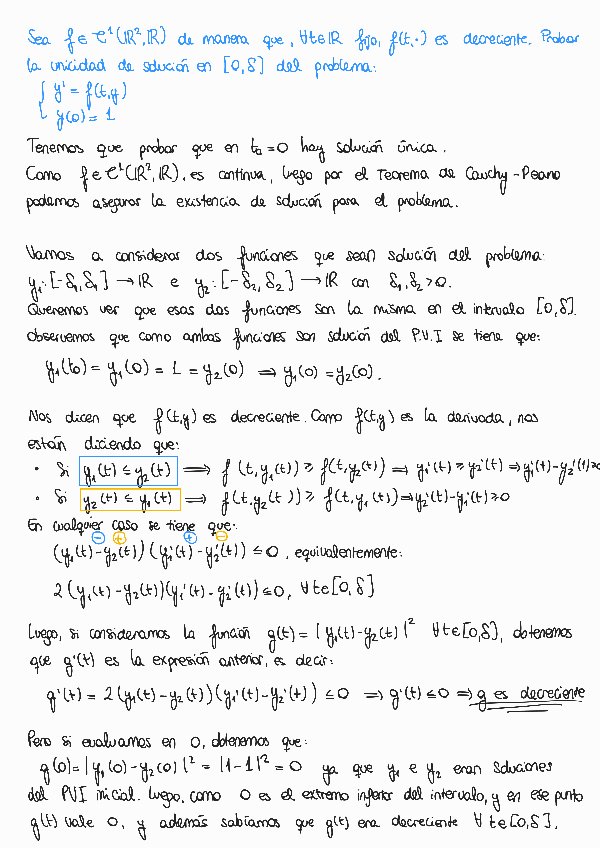 Sea f ∈ C¹(ℝ², ℝ) de manera que, ∀t∈ℝ fijo, f(t,·) es decreciente. Probar
la unicidad de solución en [0,δ] del problema:
{ y' = f(t,y)
y(0) = 1
Tenemos que probar que en t₀=0 hay solución única.
Como f ∈ C¹(ℝ², ℝ), es continua, luego por el Teorema de Cauchy-Peano
podemos asegurar la existencia de solución para el problema.
Vamos a considerar dos funciones que sean solución del problema:
y₁: [-δ₁, δ₁] → ℝ e y₂: [-δ₂, δ₂] → ℝ con δ₁, δ₂ > 0.
Queremos ver que esas dos funciones son la misma en el intervalo [0,δ].
Observemos que como ambas funciones son solución del P.V.I se tiene que:
y₁(t₀) = y₁(0) = 1 = y₂(0) ⟹ y₁(0) = y₂(0).
Nos dicen que f(t,y) es decreciente. Como f(t,y) es la derivada, nos
están diciendo que:
• Si y₁(t) ≤ y₂(t) ⟹ f(t, y₁(t)) ≥ f(t, y₂(t)) ⟹ y₁'(t) ≥ y₂'(t) ⟹ y₁'(t) - y₂'(t) ≥ 0
• Si y₂(t) ≤ y₁(t) ⟹ f(t, y₂(t)) ≥ f(t, y₁(t)) ⟹ y₂'(t) - y₁'(t) ≥ 0
En cualquier caso se tiene que:
⊖ ⊕ ⊕ ⊖
(y₁(t) - y₂(t)) (y₁'(t) - y₂'(t)) ≤ 0, equivalentemente:
2 (y₁(t) - y₂(t)) (y₁'(t) - y₂'(t)) ≤ 0, ∀t∈[0,δ]
Luego, si consideramos la función g(t) = |y₁(t) - y₂(t)|² ∀t∈[0,δ], obtenemos
que g'(t) es la expresión anterior, es decir:
g'(t) = 2(y₁(t) - y₂(t)) (y₁'(t) - y₂'(t)) ≤ 0 ⟹ g'(t) ≤ 0 ⟹ g es decreciente
Pero si evaluamos en 0, obtenemos que:
g(0) = |y₁(0) - y₂(0)|² = |1-1|² = 0 ya que y₁ e y₂ eran soluciones
del PVI inicial. Luego, como 0 es el extremo inferior del intervalo, y en ese punto
g(t) vale 0, y además sabíamos que g(t) era decreciente ∀t∈[0,δ],